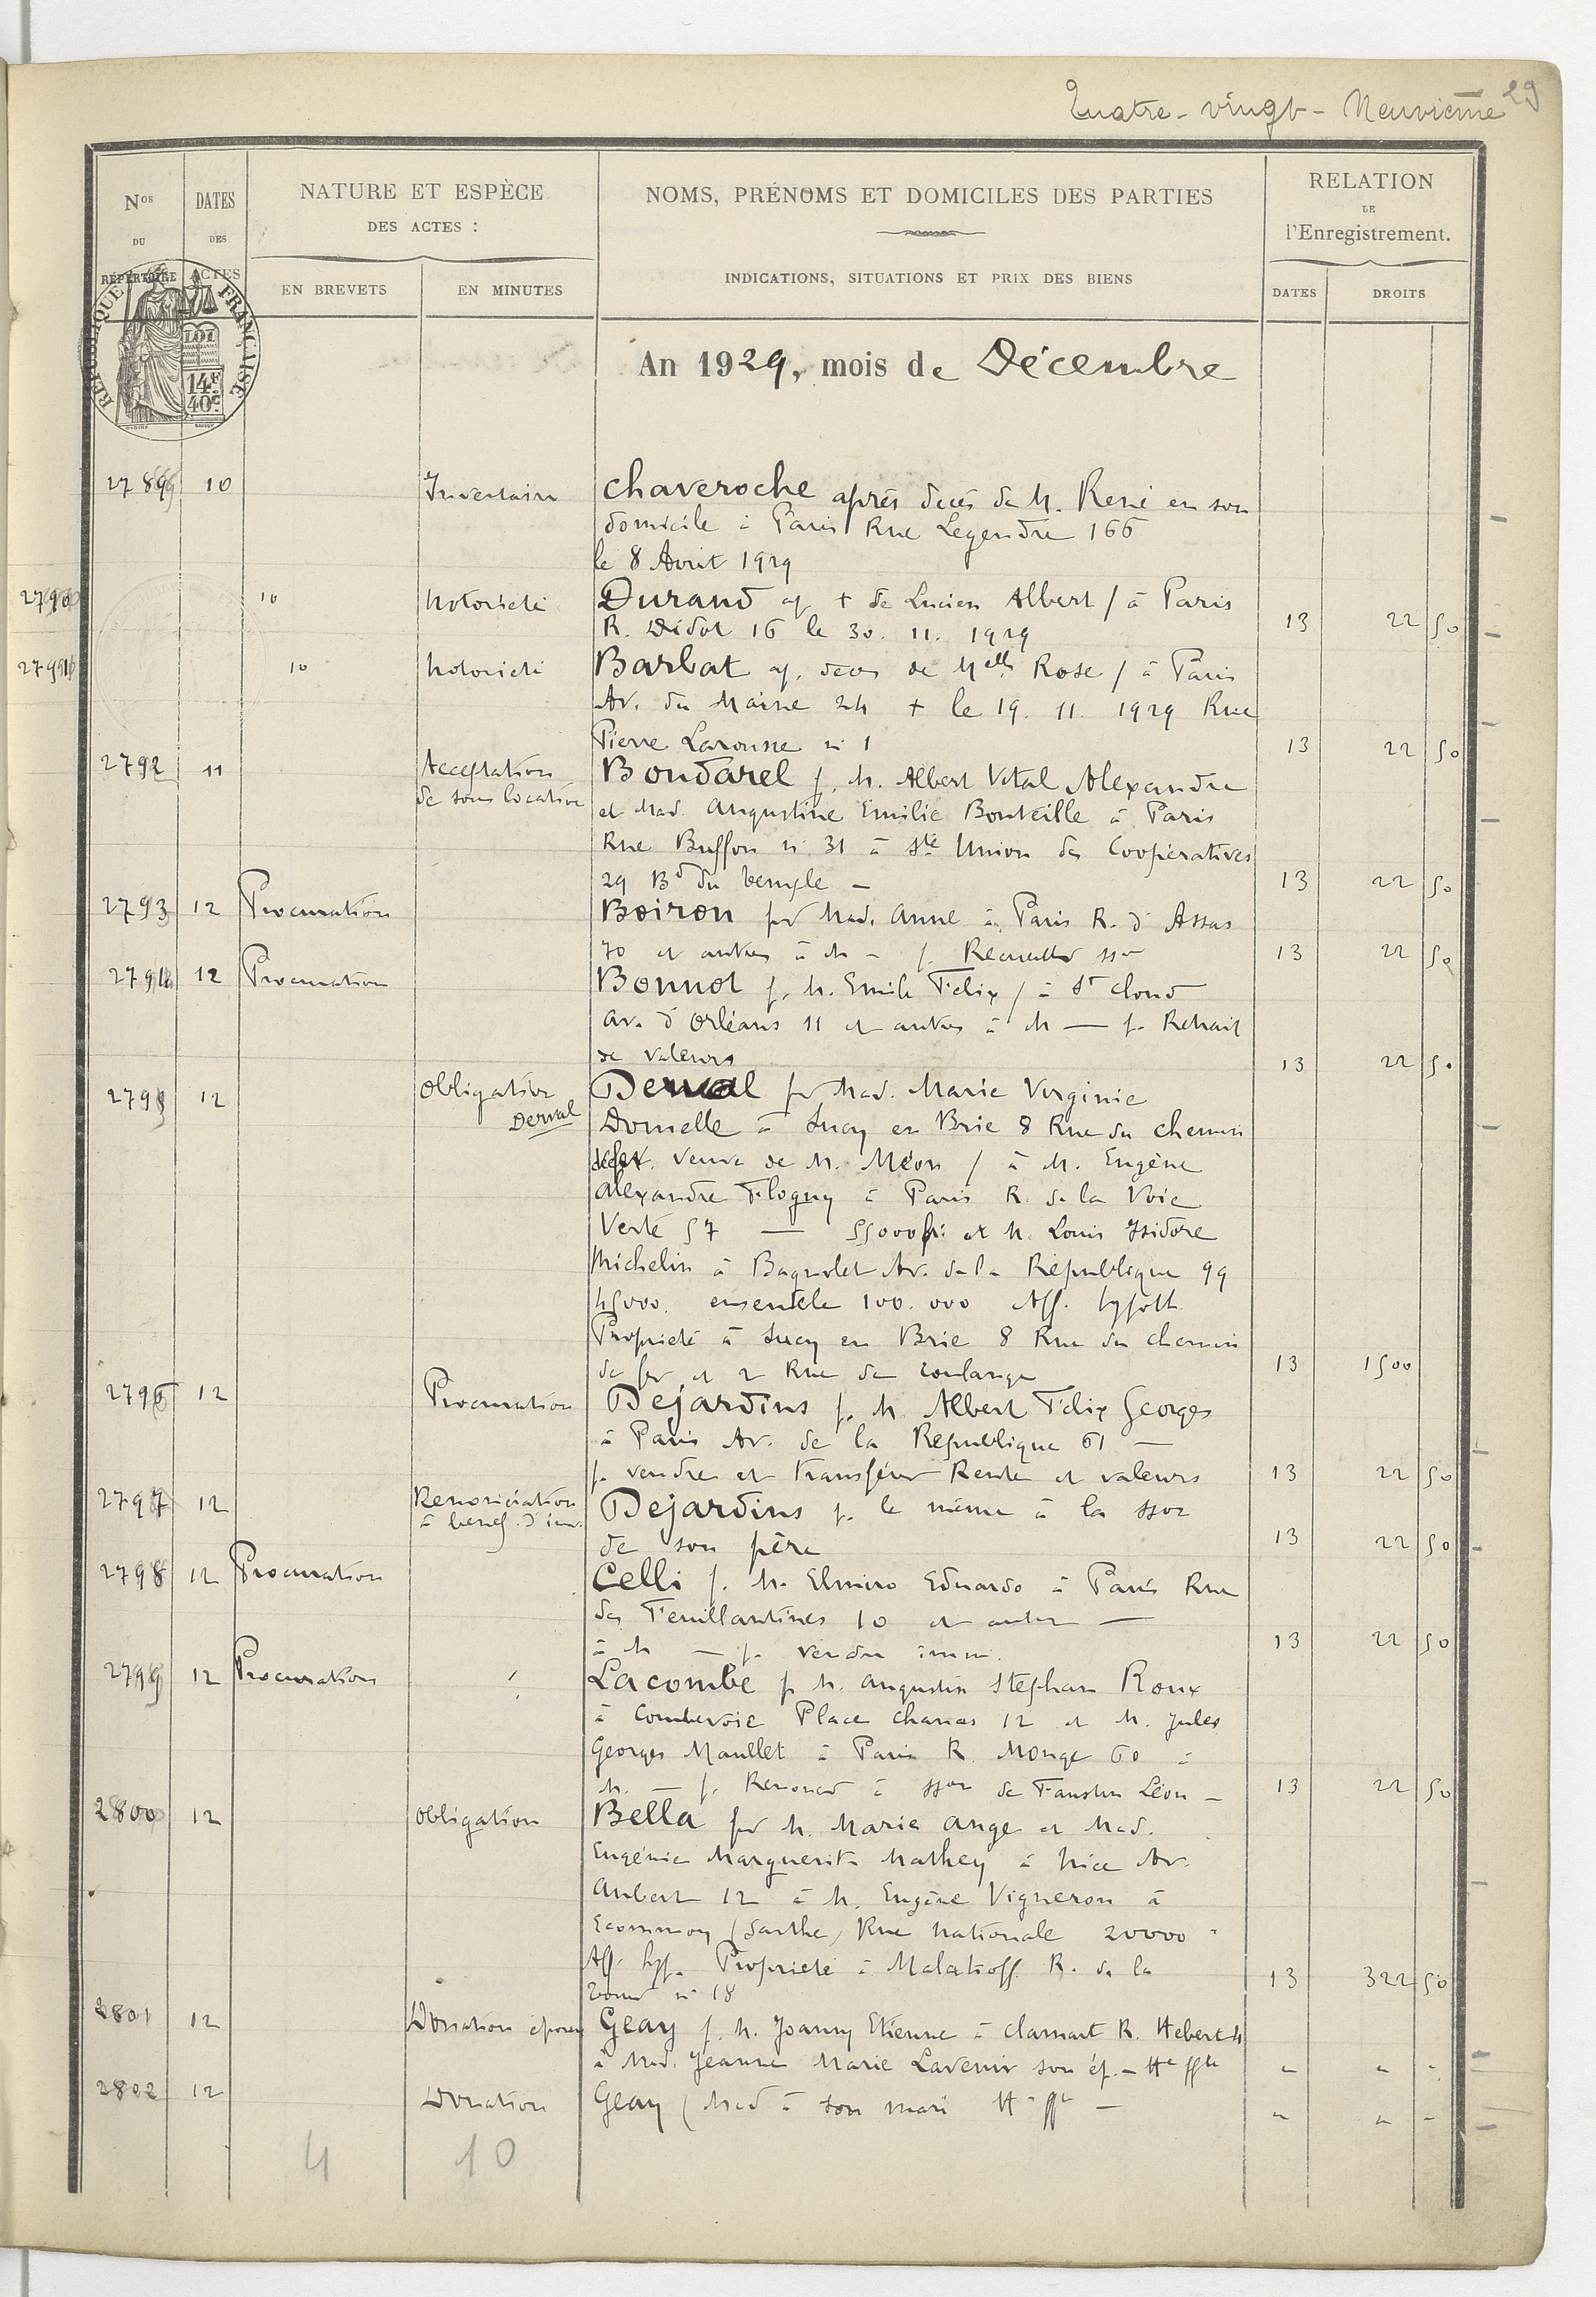 Quatre-vingt-Neuvième 29
Nos DU RÉPERTOIRE
DATES DES ACTES
NATURE ET ESPÈCE
DES ACTES :
EN BREVETS
EN MINUTES
NOMS, PRÉNOMS ET DOMICILES DES PARTIES
INDICATIONS, SITUATIONS ET PRIX DES BIENS
RELATION
DE
l'Enregistrement.
DATES
DROITS
RÉPUBLIQUE FRANÇAISE
LOI
14F
40c
An 1929, mois de Décembre
2789 10 Inventaire Chaveroche après decès de M. René en son
domicile à Paris Rue Legendre 166
le 8 Aout 1929
2790 10 Notorieté Durand ap + de Lucien Albert / à Paris
R. Didot 16 le 30. 11. 1929 13 22 50
2791 10 Notorieté Barbat ap. deces de Melle Rose / à Paris
Av. du Maine 24 + le 19. 11. 1929 Rue
Pierre Larousse n 1 13 22 50
2792 11 Acceptation Boudarel p. M. Albert Vital Alexandre
de sous location et Mad. Augustine Emilie Bonteille à Paris
Rue Buffon n. 31 à Sté Union des Coopératives
29 Bd du temple — 13 22 50
2793 12 Procuration Boiron pr Mad. Anne à Paris R. d'Assas
70 et autres à M — p. Recueillir sson 13 22 50
2794 12 Procuration Bonnot p. M. Emile Felix / à St Cloud
av. d'Orléans 11 et autres à M — p. Retrait
de valeurs 13 22 50
2795 12 Obligation Derval pr Mad. Marie Virginie
Derval Domelle à Sucy en Brie 8 Rue du chemin
de fer. Veuve de M. Méon / à M. Eugène
Alexandre Flogny à Paris R. de la Voie
Verte 57 — 55000 fr. et M. Louis Isidore
Michelin à Bagnolet Av. de la République 99
45000. ensemble 100.000 Aff. hypoth.
Propriété à Sucy en Brie 8 Rue du chemin
de fer et 2 Rue de Coulange 13 1500
2796 12 Procuration Dejardins p. M. Albert Felix Georges
à Paris Av. de la République 61 —
p. vendre et transférer Rente et valeurs 13 22 50
2797 12 Renonciation Dejardins p. le même à la sson
à benef. d'inv. de son père 13 22 50
2798 12 Procuration Celli p. M. Elmiro Eduardo à Paris Rue
des Feuillantines 10 et autre —
à M — p. vendre imm. 13 22 50
2799 12 Procuration Lacombe p M. Augustin Stephan Roux
à Courbevoie Place Charras 12 et M. Jules
Georges Maullet à Paris R. Monge 60 à
M. — p. Renoncer à sson de Faustin Léon — 13 22 50
2800 12 Obligation Bella pr M. Marie Ange et Mad.
Eugénie Marguerite Mathey à Nice Av.
Aubert 12 à M. Eugène Vigneron à
Ecommoy (Sarthe) Rue Nationale 20000
Aff. hyp. Propriété à Malakoff R. de la
Tour n 18 13 322 50
2801 12 Donation époux Geay p. M. Joanny Etienne à Clamart R. Hebert 4
à Mad. Jeanne Marie Lavenir son ép. —
2802 12 Donation Geay (Mad à son mari
4 10